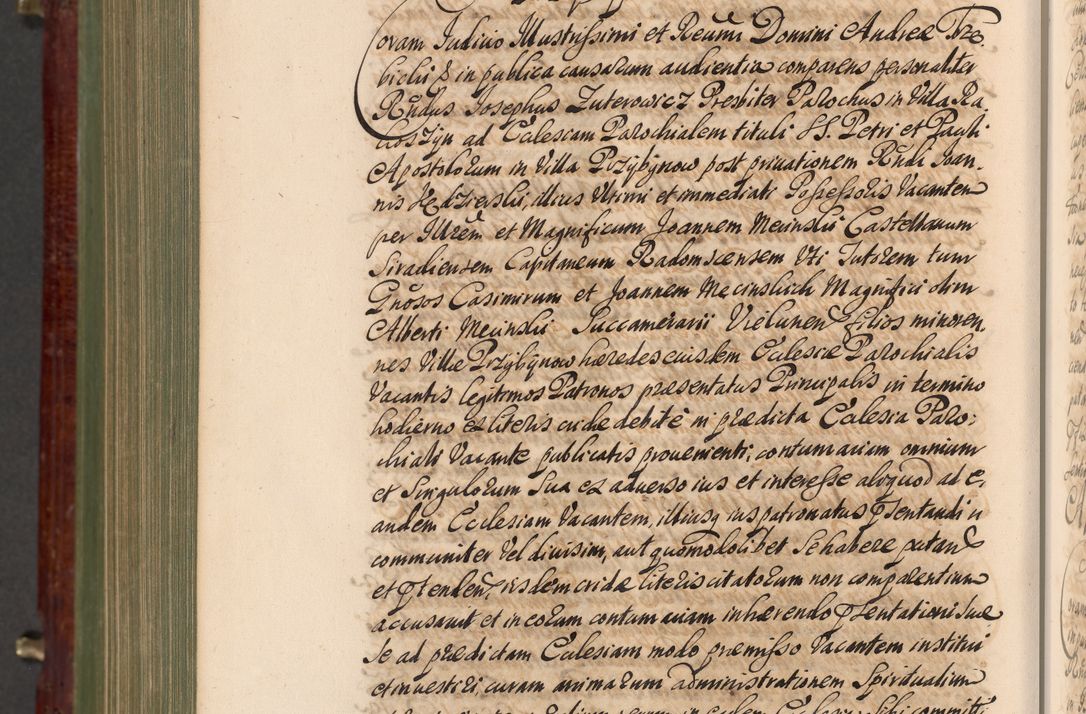 Coram Judicio Illustrissimi et Reũmi Domini Andreæ Trze,
bichi &c in publica causarum audientia comparens personaliter
Rñdus Josephus Zuterowicz Presbiter Parochus in Villa Ra
cioszyn ad Eclesiam Parochialem tituli SS. Petri et Pauli
Apostolorum in Villa Przybynow post privationem Rñdi Joan,
nis Kędzierski, illius Ultimi et immediati Possessoris Vacantem
per Illrem et Magnificum Joannem Mecinski Castellanum
Siradiensem Capitaneum Radomscensem Uti Tutorem tum
Gñosos Casimirum et Joannem Mecinskich Magnifici olim
Alberti Mecinski Succamerarii Vielunen filios minoren,
nes Villæ Przybynow hæredes eiusdem Eclesiæ Parochialis
Vacantis legitimos Patronos præsentatus Principalis in termino
hodierno ex literis cridæ debitè in prædicta Eclesia Paro,
chiali Vacante publicatis provenienti, contumaciam omnium
et Singulorum Sua ex adverso ius et interesse aliquod ad e,
andem Ecclesiam Vacantem, illiusq ius patronatus pſentandi
communiter vel divisim, aut quomodolibet Se habere putan
et pſtenden, iisdem cridæ literis citatorum non comparentium
accusavit et in eorum contumaciam inhærendo pſentationi Suæ
Se ad prædictam Eclesiam modo præmisso Vacantem institui
et investiri, curam animarum administrationem Spiritualium